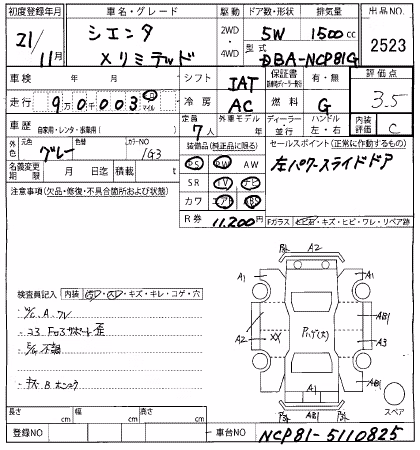 初度登録年月 車名・グレード 駆動 ドア数・形状 排気量 出品NO.
21/11月 シエンタ 2WD 5W 1500cc 2523
Xリミテッド 4WD 型式 DBA-NCP81G
車検 年 月 シフト IAT 保証書 有・無 評価点
走行 9万0003 キロ マイル 冷房 AC 燃料 G 3.5
車歴 自家用・レンタ・事業用( ) 定員 7人 外車モデル 年 ディーラー 並行 ハンドル 左・右 内装評価 C
外色 元色 グレー 色替 カラーNO 1G3
装備品(純正品に限る) セールスポイント(正常に作動するもの)
PS PW AW 左パワースライドドア
名義変更期限 月 日迄 積載 t
SR TV ナビ
注意事項(欠品・修復・不具合箇所および状態)
カワ エアB ABS
R券 11,200円 Fガラス ・キズ・ヒビ・ワレ・リペア跡
A2
A1 A1
検査員記入 内装 ・キズ・キレ・コゲ・穴
A.ワレ
コアサポート歪
不調
B
A2 XX AB1 A3
A1 AB1
AB1
スペア
長さ cm 幅 cm 高さ cm
登録NO 車台NO NCP81-5110825